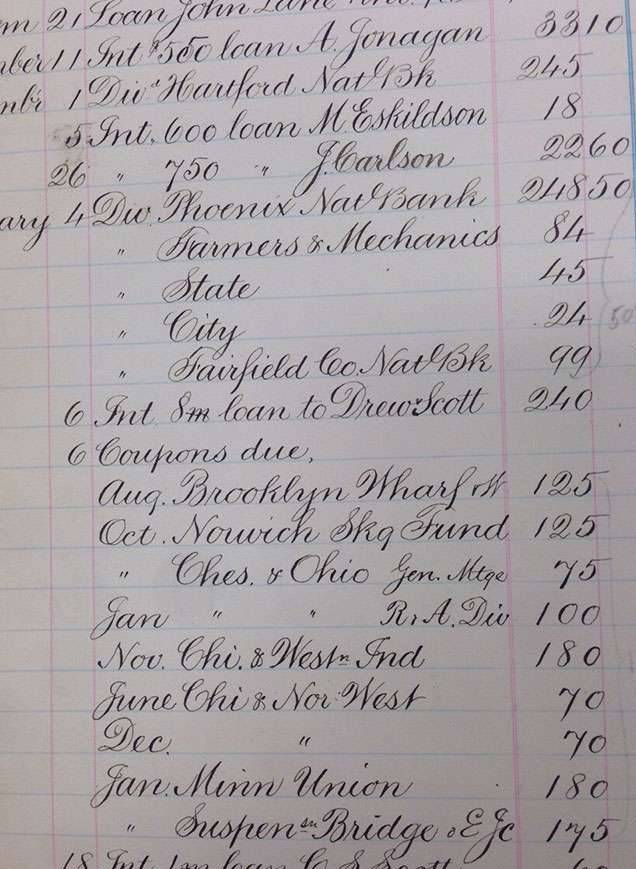 21 Loan John Lane
11 Int $550 loan A. Jonagan 33 10
1 Divd Hartford Natl Bk 245
5 Int. 600 loan M. Eskildson 18
26 " 750 " J. Carlson 22 60
ary 4 Div. Phoenix Natl Bank 248 50
" Farmers & Mechanics 84
" State 45
" City 24
" Fairfield Co. Natl Bk 99
6 Int 8m loan to Drew Scott 240
6 Coupons due,
Aug. Brooklyn Wharf & W 125
Oct. Norwich Skg Fund 125
" Ches. & Ohio Gen. Mtge 75
Jan " " R. & A. Div 100
Nov. Chi. & Westn Ind 180
June Chi & Nor. West 70
Dec. " 70
Jan. Minn Union 180
" Suspensn Bridge & E Jc 175
18 Int 1m loan C. S. Scott 60